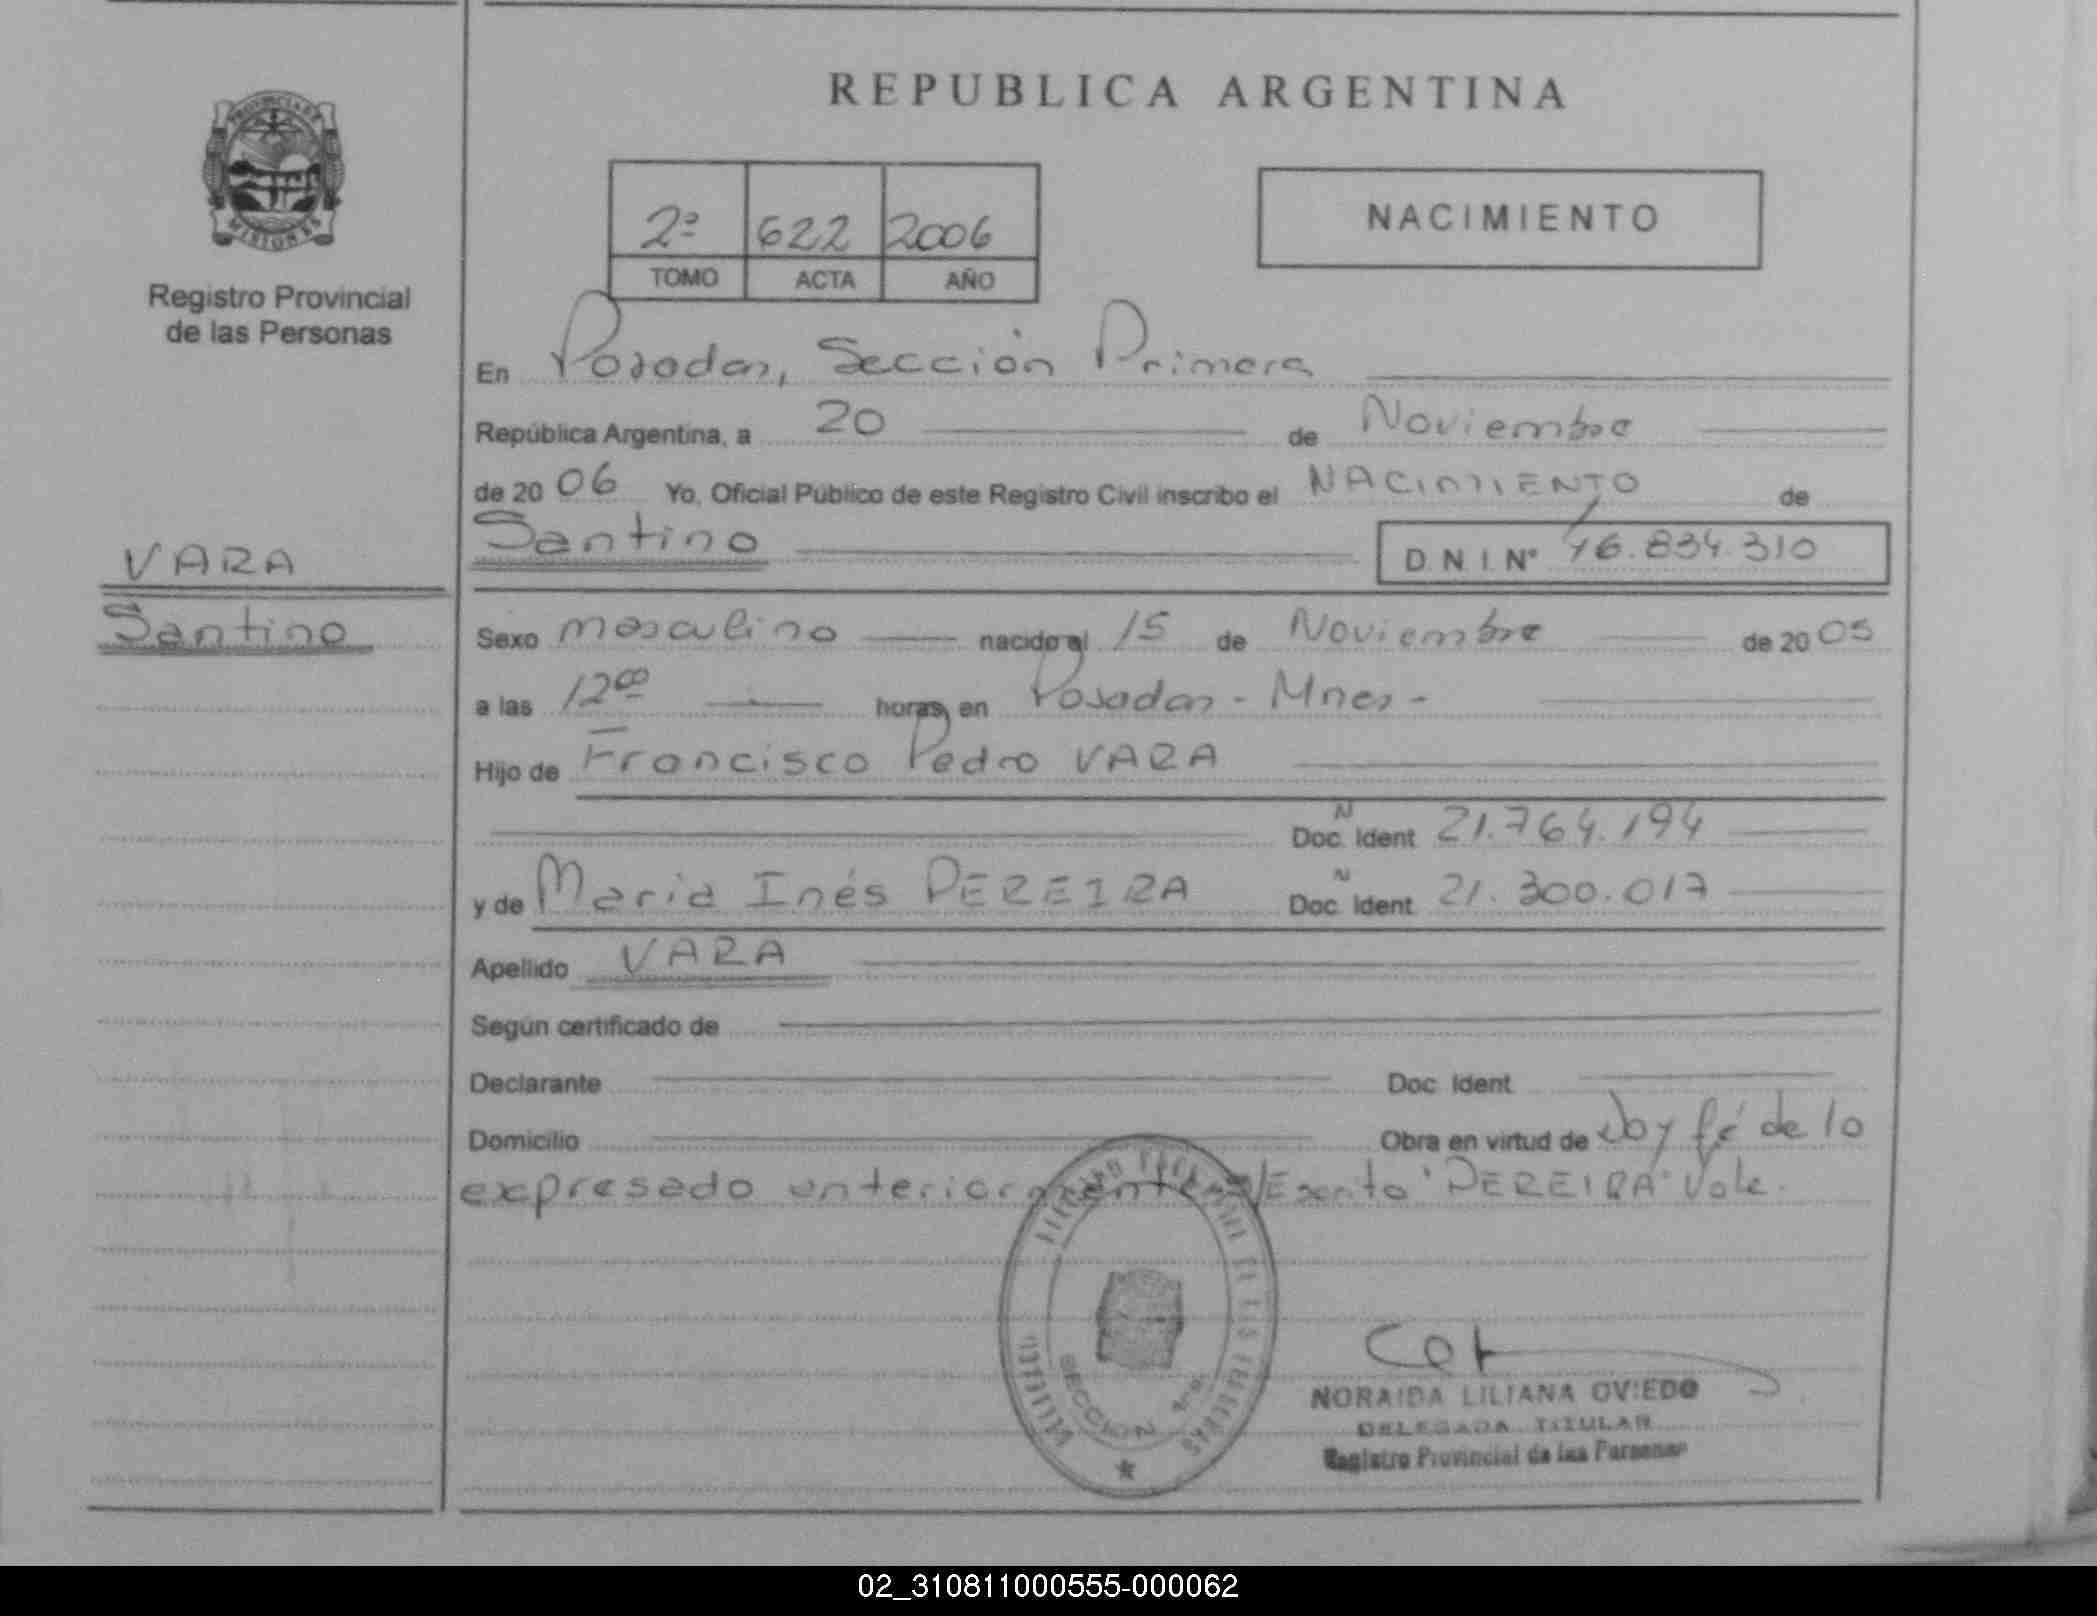 PROVINCIA DE
MISIONES
Registro Provincial
de las Personas
VARA
Santino
REPUBLICA ARGENTINA
2º 622 2006
TOMO ACTA AÑO
NACIMIENTO
En Posadas, Sección Primera
República Argentina, a 20 de Noviembre
de 2006 Yo, Oficial Público de este Registro Civil inscribo el NACIMIENTO de
Santino D.N.I. Nº 46.834.310
Sexo masculino nacido el 15 de Noviembre de 2005
a las 12 00 horas, en Posadas - Mnes -
Hijo de Francisco Pedro VARA
Doc. Ident N 21.764.194
y de Maria Inés PEREIRA Doc. Ident. N 21.300.017
Apellido VARA
Según certificado de
Declarante Doc. Ident.
Domicilio Obra en virtud de Doy fé de lo
expresado anteriormente "PEREIRA" Vale.
SECCION 1ra.
NORAIDA LILIANA OVIEDO
DELEGADA TITULAR
Registro Provincial de las Personas
02_310811000555-000062